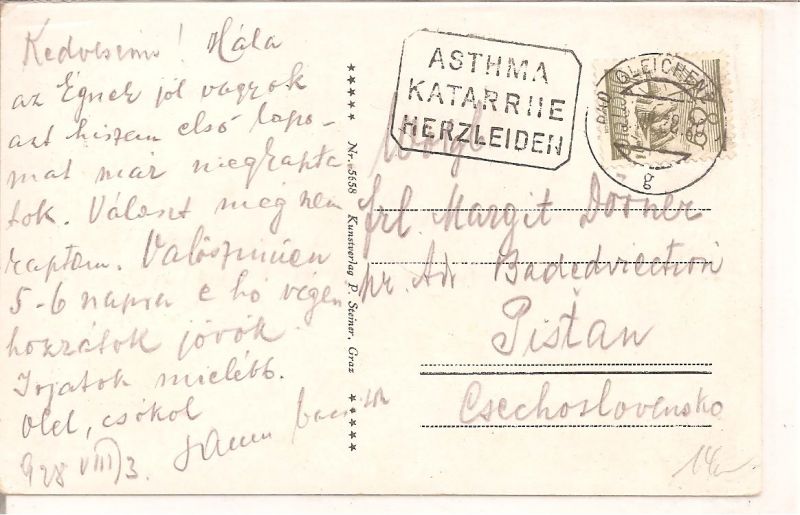 Kedveseim! Hála
az Égnek jól vagyok
azt hiszem első lapo-
mat már megkapta
tok. Választ még nem
kaptam. Valószinüen
5-6 napra e hó végén
hozzátok jövök.
Irjatok mielébb.
ölel, csókol
928 VIII/3.
★★★★★ Nr. 5658 Kunstverlag P. Steiner, Graz ★★★★★
ASTHMA
KATARRHE
HERZLEIDEN
BAD GLEICHEN
g
Wolg
frl. Margit Dorner
pr. Adr Badedirection
Pištan
Csechoslovensko